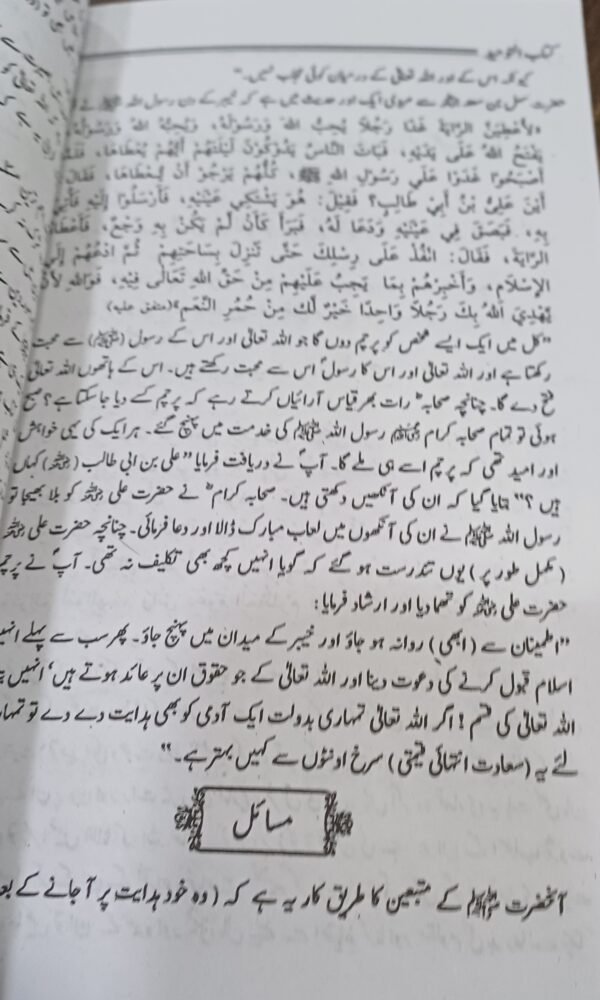 کتاب التوحید
کیونکہ اس کے اور اللہ تعالیٰ کے درمیان کوئی حجاب نہیں۔"
حضرت سہل بن سعد سے مروی ایک اور حدیث میں ہے کہ خیبر کے دن رسول اللہ ﷺ نے
«لَأُعْطِيَنَّ الرَّايَةَ غَدًا رَجُلًا يُحِبُّ اللهَ وَرَسُولَهُ، وَيُحِبُّهُ اللهُ وَرَسُولُهُ،
يَفْتَحُ اللهُ عَلَى يَدَيْهِ، فَبَاتَ النَّاسُ يَدُوكُونَ لَيْلَتَهُمْ أَيُّهُمْ يُعْطَاهَا، فَلَمَّا
أَصْبَحُوا غَدَوْا عَلَى رَسُولِ اللهِ ﷺ، كُلُّهُمْ يَرْجُو أَنْ يُعْطَاهَا، فَقَالَ:
أَيْنَ عَلِيُّ بْنُ أَبِي طَالِبٍ؟ فَقِيلَ: هُوَ يَشْتَكِي عَيْنَيْهِ، فَأَرْسَلُوا إِلَيْهِ فَأُتِيَ
بِهِ، فَبَصَقَ فِي عَيْنَيْهِ وَدَعَا لَهُ، فَبَرَأَ كَأَنْ لَمْ يَكُنْ بِهِ وَجَعٌ، فَأَعْطَاهُ
الرَّايَةَ، فَقَالَ: انْفُذْ عَلَى رِسْلِكَ حَتَّى تَنْزِلَ بِسَاحَتِهِمْ ثُمَّ ادْعُهُمْ إِلَى
الإِسْلَامِ، وَأَخْبِرْهُمْ بِمَا يَجِبُ عَلَيْهِمْ مِنْ حَقِّ اللهِ تَعَالَى فِيهِ، فَوَاللهِ لَأَنْ
يَهْدِيَ اللهُ بِكَ رَجُلًا وَاحِدًا خَيْرٌ لَكَ مِنْ حُمُرِ النَّعَمِ»(متفق علیہ)
"کل میں ایک ایسے شخص کو پرچم دوں گا جو اللہ تعالیٰ اور اس کے رسول (ﷺ) سے محبت
رکھتا ہے اور اللہ تعالیٰ اور اس کا رسول اس سے محبت رکھتے ہیں۔ اس کے ہاتھوں اللہ تعالیٰ
فتح دے گا۔ چنانچہ صحابہ رات بھر قیاس آرائیاں کرتے رہے کہ پرچم کسے دیا جا سکتا ہے؟ صبح
ہوئی تو تمام صحابہ کرام رسول اللہ ﷺ کی خدمت میں پہنچ گئے۔ ہر ایک کی یہی خواہش
اور امید تھی کہ پرچم اسے ہی ملے گا۔ آپ نے دریافت فرمایا "علی بن ابی طالب کہاں
ہیں؟" بتایا گیا کہ ان کی آنکھیں دکھتی ہیں۔ صحابہ کرام نے حضرت علی کو بلا بھیجا تو
رسول اللہ ﷺ نے ان کی آنکھوں میں لعاب مبارک ڈالا اور دعا فرمائی۔ چنانچہ حضرت علی
(مکمل طور پر) یوں تندرست ہو گئے کہ گویا انہیں کچھ بھی تکلیف نہ تھی۔ آپ نے پرچم
حضرت علی کو تھما دیا اور ارشاد فرمایا:
"اطمینان سے (ابھی) روانہ ہو جاؤ اور خیبر کے میدان میں پہنچ جاؤ۔ پھر سب سے پہلے انہیں
اسلام قبول کرنے کی دعوت دینا اور اللہ تعالیٰ کے جو حقوق ان پر عائد ہوتے ہیں، انہیں
اللہ تعالیٰ کی قسم! اگر اللہ تعالیٰ تمہاری بدولت ایک آدمی کو بھی ہدایت دے دے تو
لئے یہ (سعادت انتہائی قیمتی) سرخ اونٹوں سے کہیں بہتر ہے۔"
مسائل
آنحضرت ﷺ کے متبعین کا طریق کار یہ ہے کہ (وہ خود ہدایت پر آ جانے کے